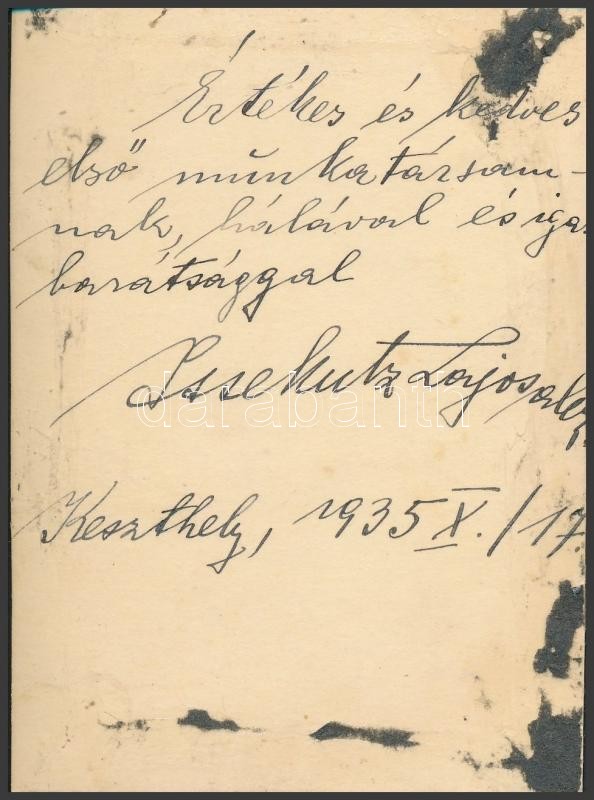 Értékes és kedves
első munkatársam-
nak, hálával és iga
barátsággal
Issekutz Lajos
Keszthely, 1935 X./17.
darabanth